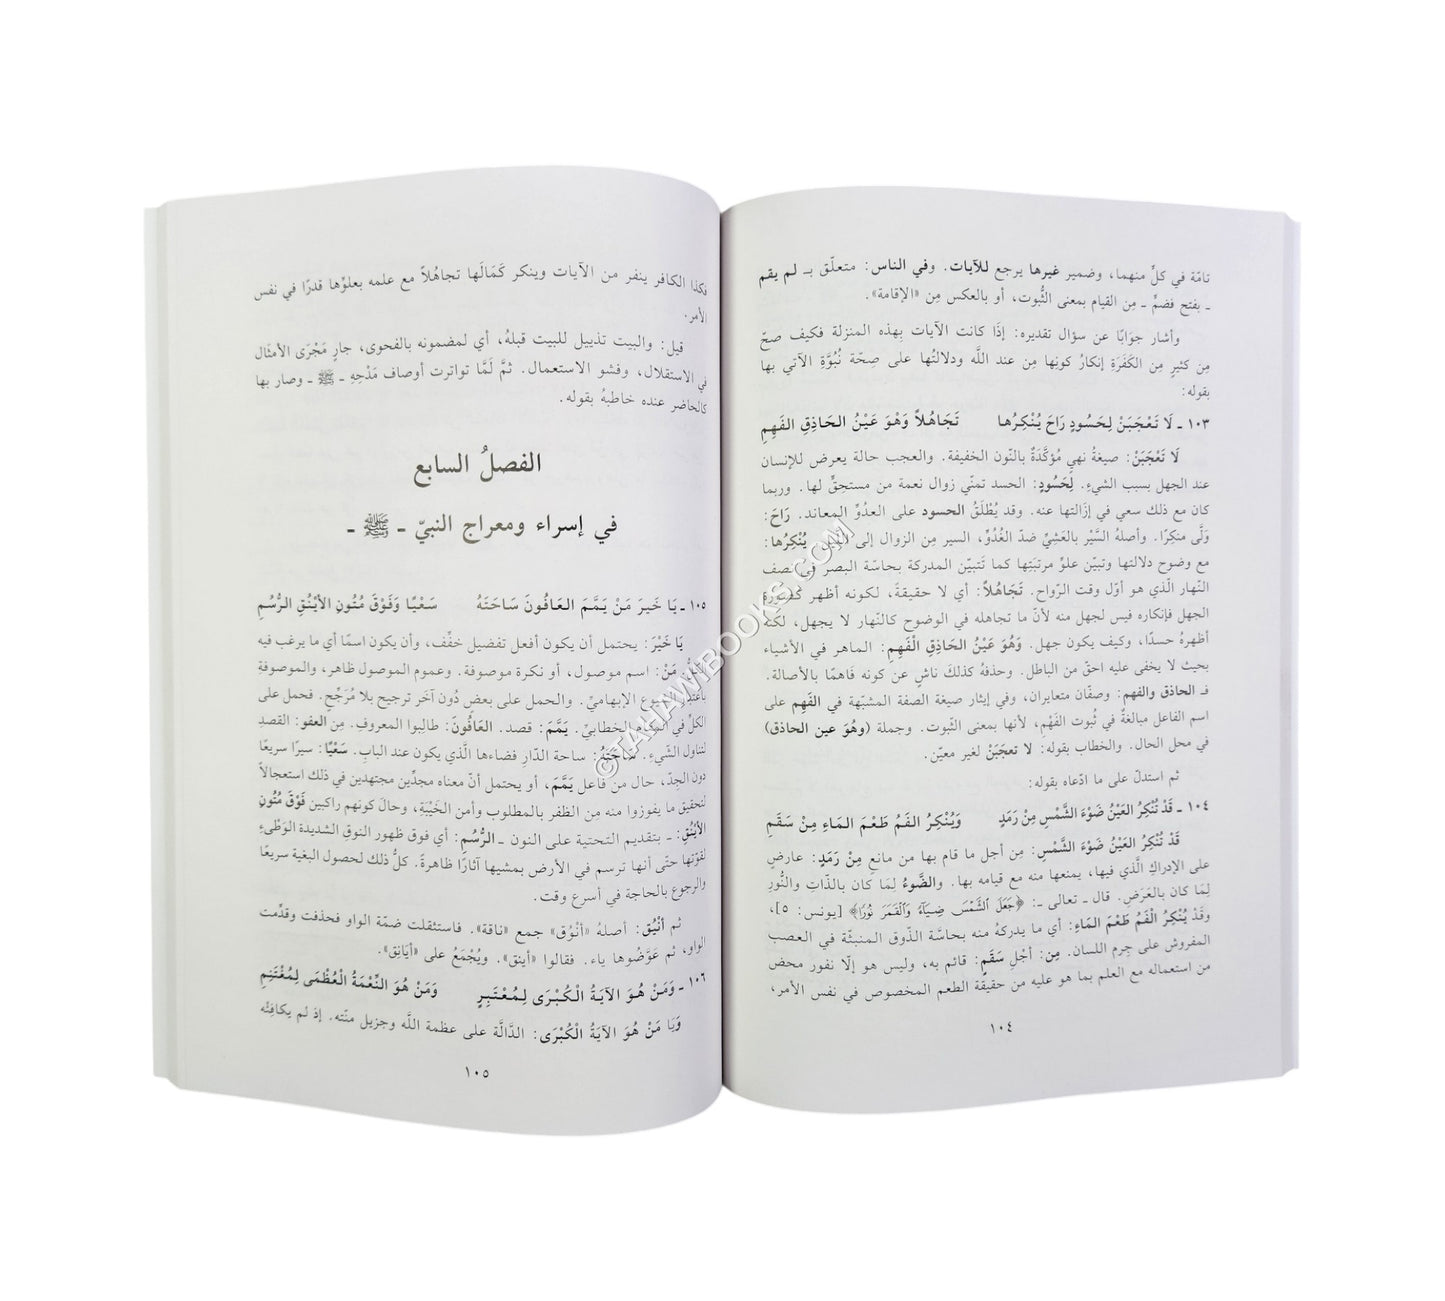 تامّة في كلٍّ منهما، وضمير غيرها يرجع للآيات. وفي الناس: متعلّق بـ لم يقم
ـ بفتح فضمٍّ ـ مِن القيام بمعنى الثُّبوت، أو بالعكس مِن «الإقامة».
وأشار جوَابًا عن سؤال تقديره: إذَا كانت الآيات بهذه المنزلة فكيف صحّ
مِن كثيرٍ مِن الكَفَرَةِ إنكارُ كونِها مِن عند اللَّه ودلالتُها على صِحّة نُبُوَّةِ الآتي بها
بقوله:
١٠٣ ـ لَا تَعْجَبَنْ لِحَسُودٍ رَاحَ يُنْكِرُها تَجَاهُلاً وَهْوَ عَيْنُ الحَاذِقِ الفَهِمِ
لَا تَعْجَبَنْ: صيغةُ نهيٍ مُؤكَّدَةٌ بالنّون الخفيفة. والعجب حالة يعرض للإنسان
عند الجهل بسبب الشيءِ. لِحَسُودٍ: الحسد تمنّي زوال نعمة من مستحِقٍّ لها. وربما
كان مع ذلك سعي في إزَالتها عنه. وقد يُطْلَقُ الحسود على العدُوّ المعاند. رَاحَ:
وَلَّى منكِرًا. وأصلهُ السَّيْر بالعَشِيّ ضدّ الغُدُوِّ، السير مِن الزوال إلى الليل. يُنْكِرُها:
مع وضوح دلالتها وتبيّن علوِّ مرتبَتِها كما تَتبيّن المدركة بحاسّة البصر في نصف
النّهار الّذي هو أوّل وقت الرّواح. تَجَاهُلاً: أي لا حقيقةً، لكونه أظهر كصورة
الجهل فإنكاره فيس لجهل منه لأنّ ما تجاهله في الوضوح كالنّهار لا يجهل، لكنّه
أظهرهُ حسدًا، وكيف يكون جهل. وَهُوَ عَيْنُ الحَاذِقِ الْفَهِمِ: الماهر في الأشياء
بحيث لا يخفى عليه احقّ من الباطل. وحذفهُ كذلكَ ناشٍ عن كونه فَاهِمًا بالأصالة.
فـ الحاذق والفهم: وصفَان متعايران، وفي إيثار صيغة الصفة المشبّهة في الفَهِم على
اسم الفاعل مبالغةٌ في ثُبوت الفَهْمِ، لأنها بمعنى الثّبوت. وجملة (وهُوَ عين الحاذق)
في محل الحال. والخطاب بقوله: لا تعجَبَنْ لغير معيّن.
ثم استدلّ على ما ادّعاه بقوله:
١٠٤ ـ قَدْ تُنْكِرُ العَيْنُ ضَوْءَ الشَّمْسِ مِنْ رَمَدٍ وَيُنْكِرُ الفَمُ طَعْمَ المَاءِ مِنْ سَقَمِ
قَدْ تُنْكِرُ العَيْنُ ضَوْءَ الشَّمْسِ: مِن أجل ما قام بها من مانعِ مِنْ رَمَدٍ: عارضٍ
على الإدراكِ الَّذي فيها، يمنعها منه مع قيامه بها. والضَّوءُ لِمَا كان بالذّاتِ والنُّورِ
لِمَا كان بالعَرَضِ. قال ـ تعالى ـ: ﴿جَعَلَ ٱلشَّمْسَ ضِيَآءً وَٱلْقَمَرَ نُورًا﴾ [يونس: ٥]،
وَقَدْ يُنْكِرُ الْفَمُ طَعْمَ المَاءِ: أي ما يدركهُ منه بحاسّة الذّوق المنبثّة في العصب
المفروش على جِرم اللسان. مِن: أجْلِ سَقَمٍ: قائم به، وليس هو إلّا نفور محض
من استعماله مع العلم بما هو عليه من حقيقة الطعم المخصوص في نفس الأمر،
١٠٤
فكذا الكافر ينفر من الآيات وينكر كَمَالَها تجاهُلاً مع علمه بعلوّها قدرًا في نفس
الأمر.
قيل: والبيت تذييل للبيت قبلهُ، أي لمضمونه بالفحوى، جارٍ مَجْرَى الأمثَال
في الاستقلال، وفشو الاستعمال. ثمَّ لَمَّا تواترت أوصاف مَدْحِهِ ـ ﷺ ـ وصار بها
كالحاضر عنده خاطبهُ بقوله.
الفصلُ السابع
في إسراء ومعراج النبيّ ـ ﷺ ـ
١٠٥ ـ يَا خَيرَ مَنْ يَمَّمَ العَافُونَ سَاحَتَهُ سَعْيًا وَفَوْقَ مُتُونِ الأيْنُقِ الرُّسُمِ
يَا خَيْرَ: يحتمل أن يكون أفعل تفضيل خفِّف، وأن يكون اسمًا أي ما يرغب فيه
الكلُّ. مَنْ: اسم موصول، أو نكرة موصوفة. وعموم الموصول ظاهر، والموصوفةِ
الإبهاميِّ. والحمل على بعضٍ دُون آخَر ترجيح بلا مُرَجِّحٍ. فحمل على
الكلِّ في المكام الخطابيِّ. يَمَّمَ: قصد. العَافُونَ: طالبوا المعروفِ. مِن العفو: القصدِ
لتناول الشَّيءِ. سَاحَتَهُ: ساحة الدّارِ فضاءها الَّذي يكون عند البابِ. سَعْيًا: سيرًا سريعًا
دون الجِدّ، حال من فاعل يَمَّمَ، أو يحتمل أنّ معناه مجدِّين مجتهدين في ذلك استعجالاً
لتحقيق ما يفوزوا منه مِن الظفر بالمطلوب وأمن الخَيْبَةِ، وحالَ كونهم راكبين فَوْقَ مُتُونِ
الأيْنُقِ: ـ بتقديم التحتية على النون ـ الرُّسُمِ: أي فوق ظهور النوقِ الشديدة الوَطْيءِ
لقوّتها حتّى أنها ترسم في الأرض بمشيها آثارًا ظاهرةً. كلُّ ذلك لحصول البغية سريعًا
والرجوعِ بالحاجة في أسرع وقت.
ثم أنْيُق: أصلهُ «أنْوُق» جمع «ناقة». فاستثقلت ضمّة الواو فحذفت وقدِّمت
الواو، ثم عَوَّضُوها ياء. فقالوا «أينق». ويُجْمَعُ على «أيَانِق».
١٠٦ ـ وَمَنْ هُوَ الآيَةُ الْكُبْرَى لِمُعْتَبِرٍ وَمَنْ هُوَ النِّعْمَةُ الْعُظْمَى لِمُغْتَنِمِ
وَيَا مَنْ هُوَ الآيَةُ الْكُبْرَى: الدَّالّة على عظمة اللَّه وجزيل منّته. إذ لم يكافِئه
١٠٥
©TAHAWIBOOKS.COM